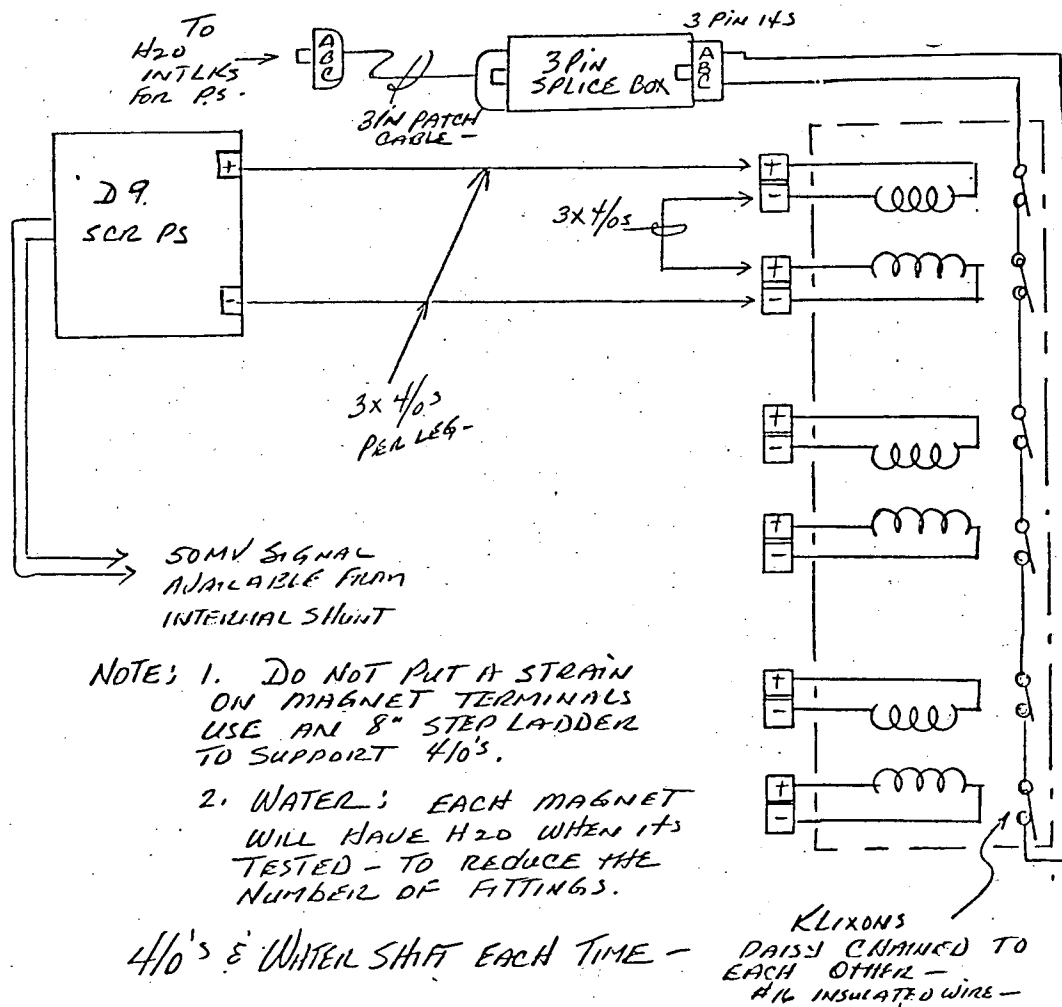 TO
H2O
INTLKS
FOR P.S.
A
B
C
3 PIN PATCH
CABLE -
3 PIN
SPLICE BOX
3 PIN 14S
A
B
C
D9
SCR PS
+
-
3 x 4/0s
PER LEG -
3x4/0s
+
-
+
-
+
-
+
-
+
-
+
-
50MV SIGNAL
AVAILABLE FROM
INTERNAL SHUNT
NOTE: 1. DO NOT PUT A STRAIN
ON MAGNET TERMINALS
USE AN 8" STEP LADDER
TO SUPPORT 4/0's.
2. WATER: EACH MAGNET
WILL HAVE H2O WHEN ITS
TESTED - TO REDUCE THE
NUMBER OF FITTINGS.
4/0's & WATER SHIFT EACH TIME -
KLIXONS
DAISY CHAINED TO
EACH OTHER -
#16 INSULATED WIRE -